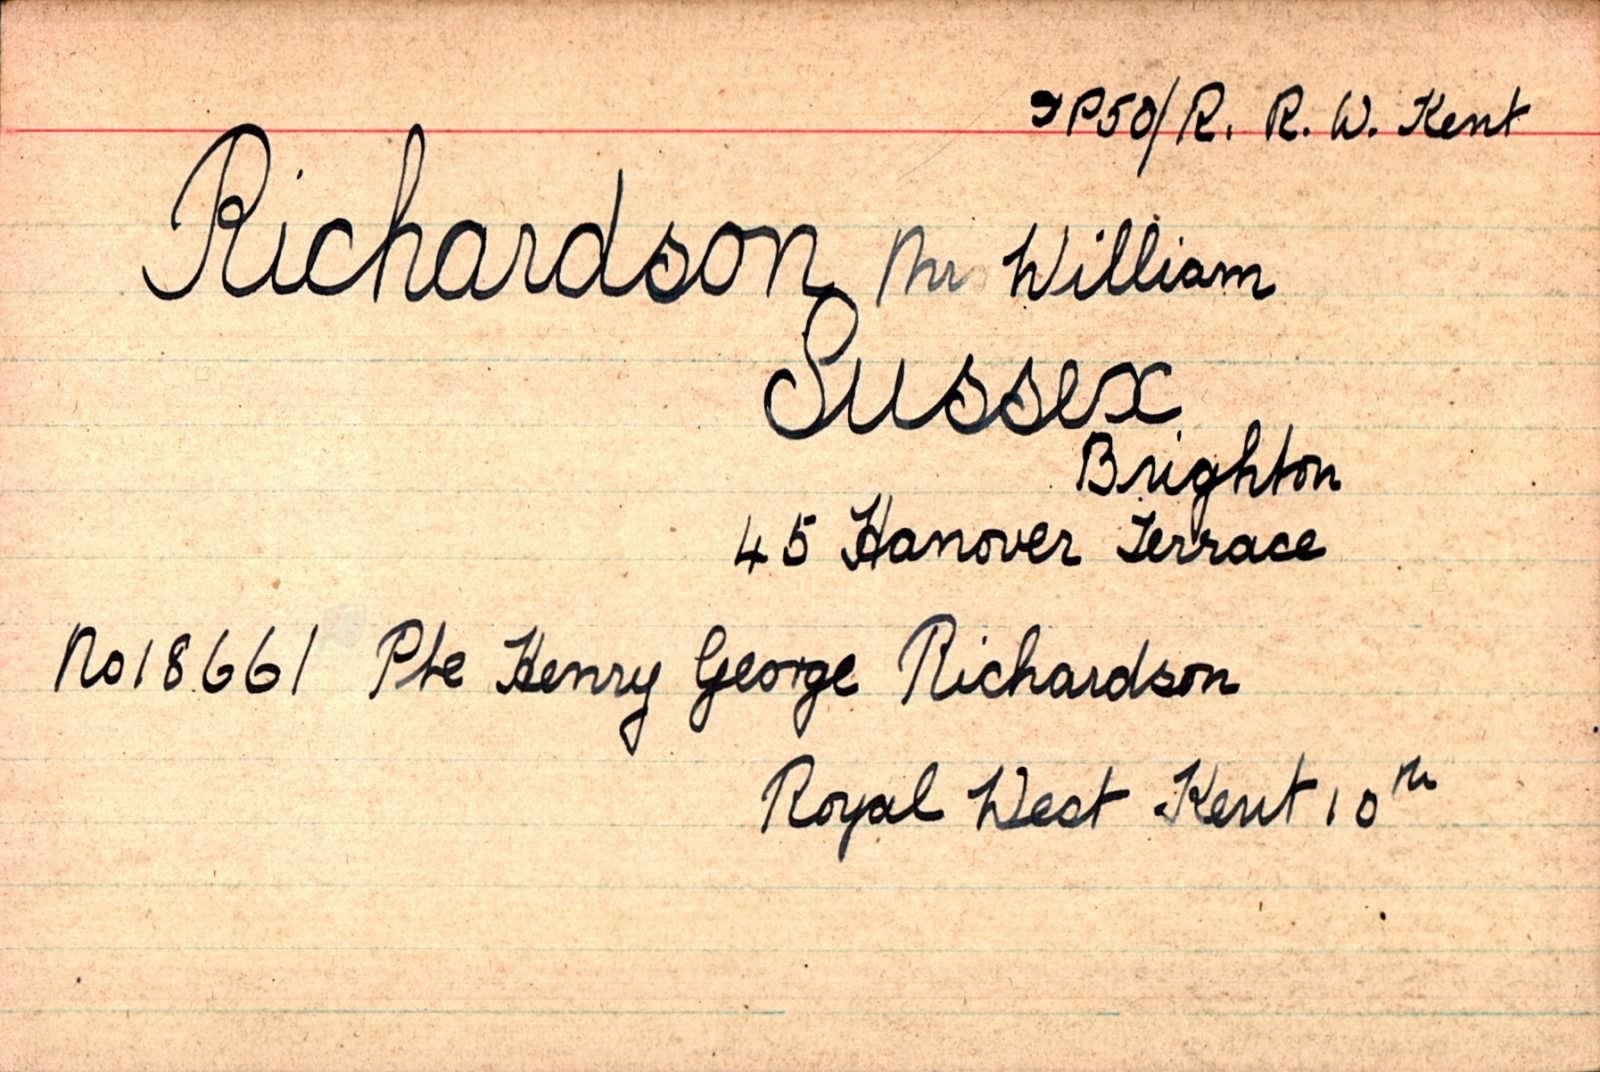 P50/R. R. W. Kent
Richardson Mrs William
Sussex
Brighton
45 Hanover Terrace
No 18661 Pte Henry George Richardson
Royal West Kent 10th